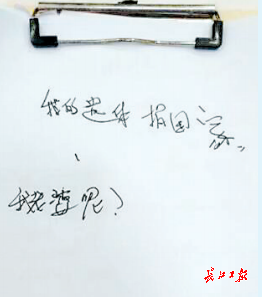 我的遗体捐国家
、
我老婆呢？
长江日报